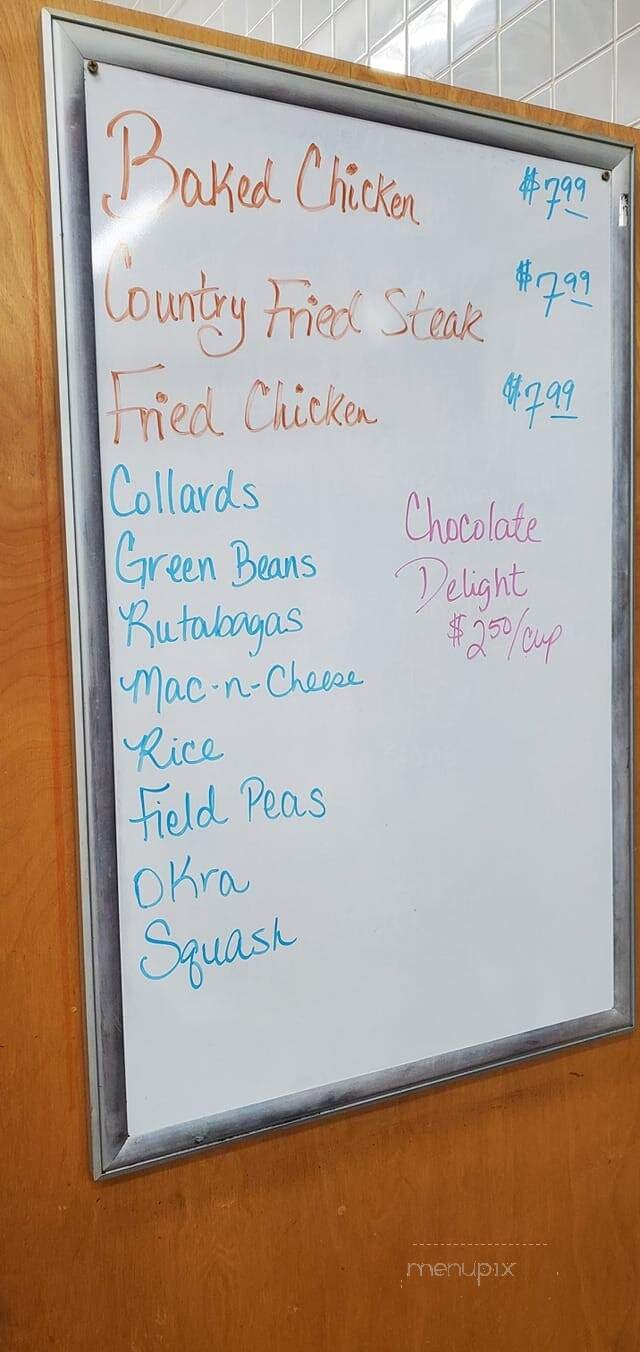 Baked Chicken $7.99
Country Fried Steak $7.99
Fried Chicken $7.99
Collards
Green Beans
Rutabagas
Mac-n-Cheese
Rice
Field Peas
Okra
Squash
Chocolate
Delight
$2.50/cup
menupix